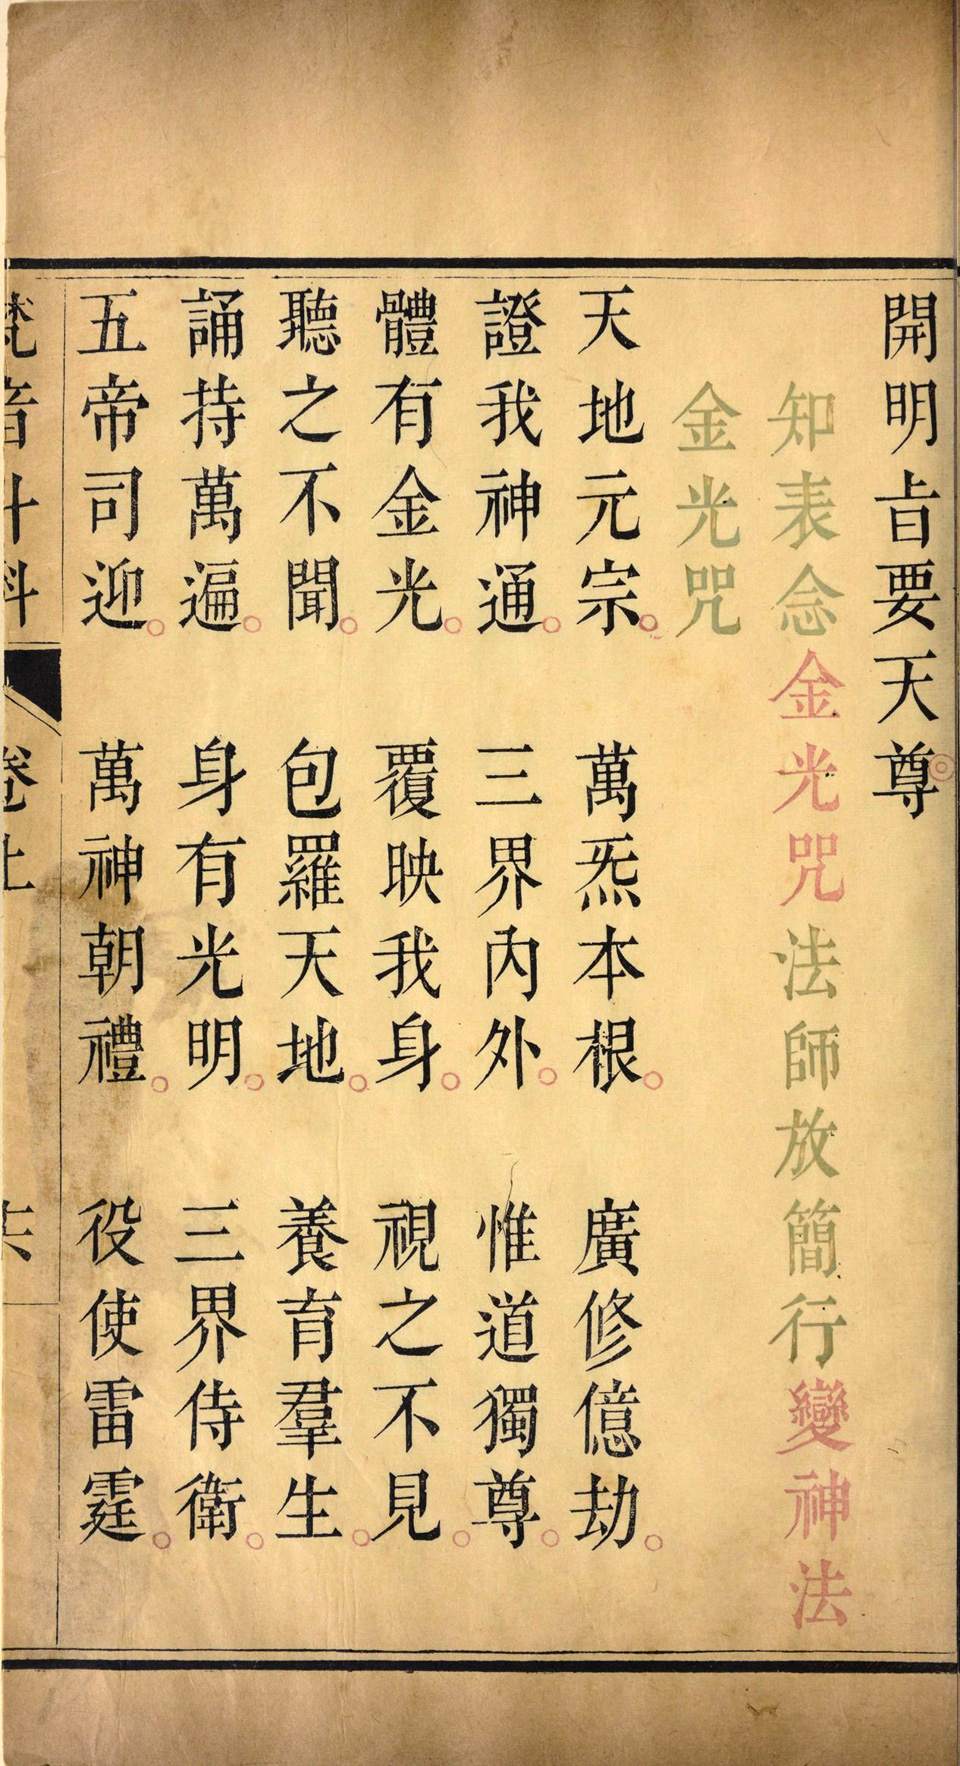 開明㫖要天尊◎
知表念金光咒法師放簡行變神法
金光咒
天地元宗○萬炁本根○廣修億劫○
證我神通○三界內外○惟道獨尊○
體有金光○覆映我身○視之不見○
聽之不聞○包羅天地○養育羣生○
誦持萬遍○身有光明○三界侍衛○
五帝司迎○萬神朝禮○役使雷霆○
梵音斗科 卷上